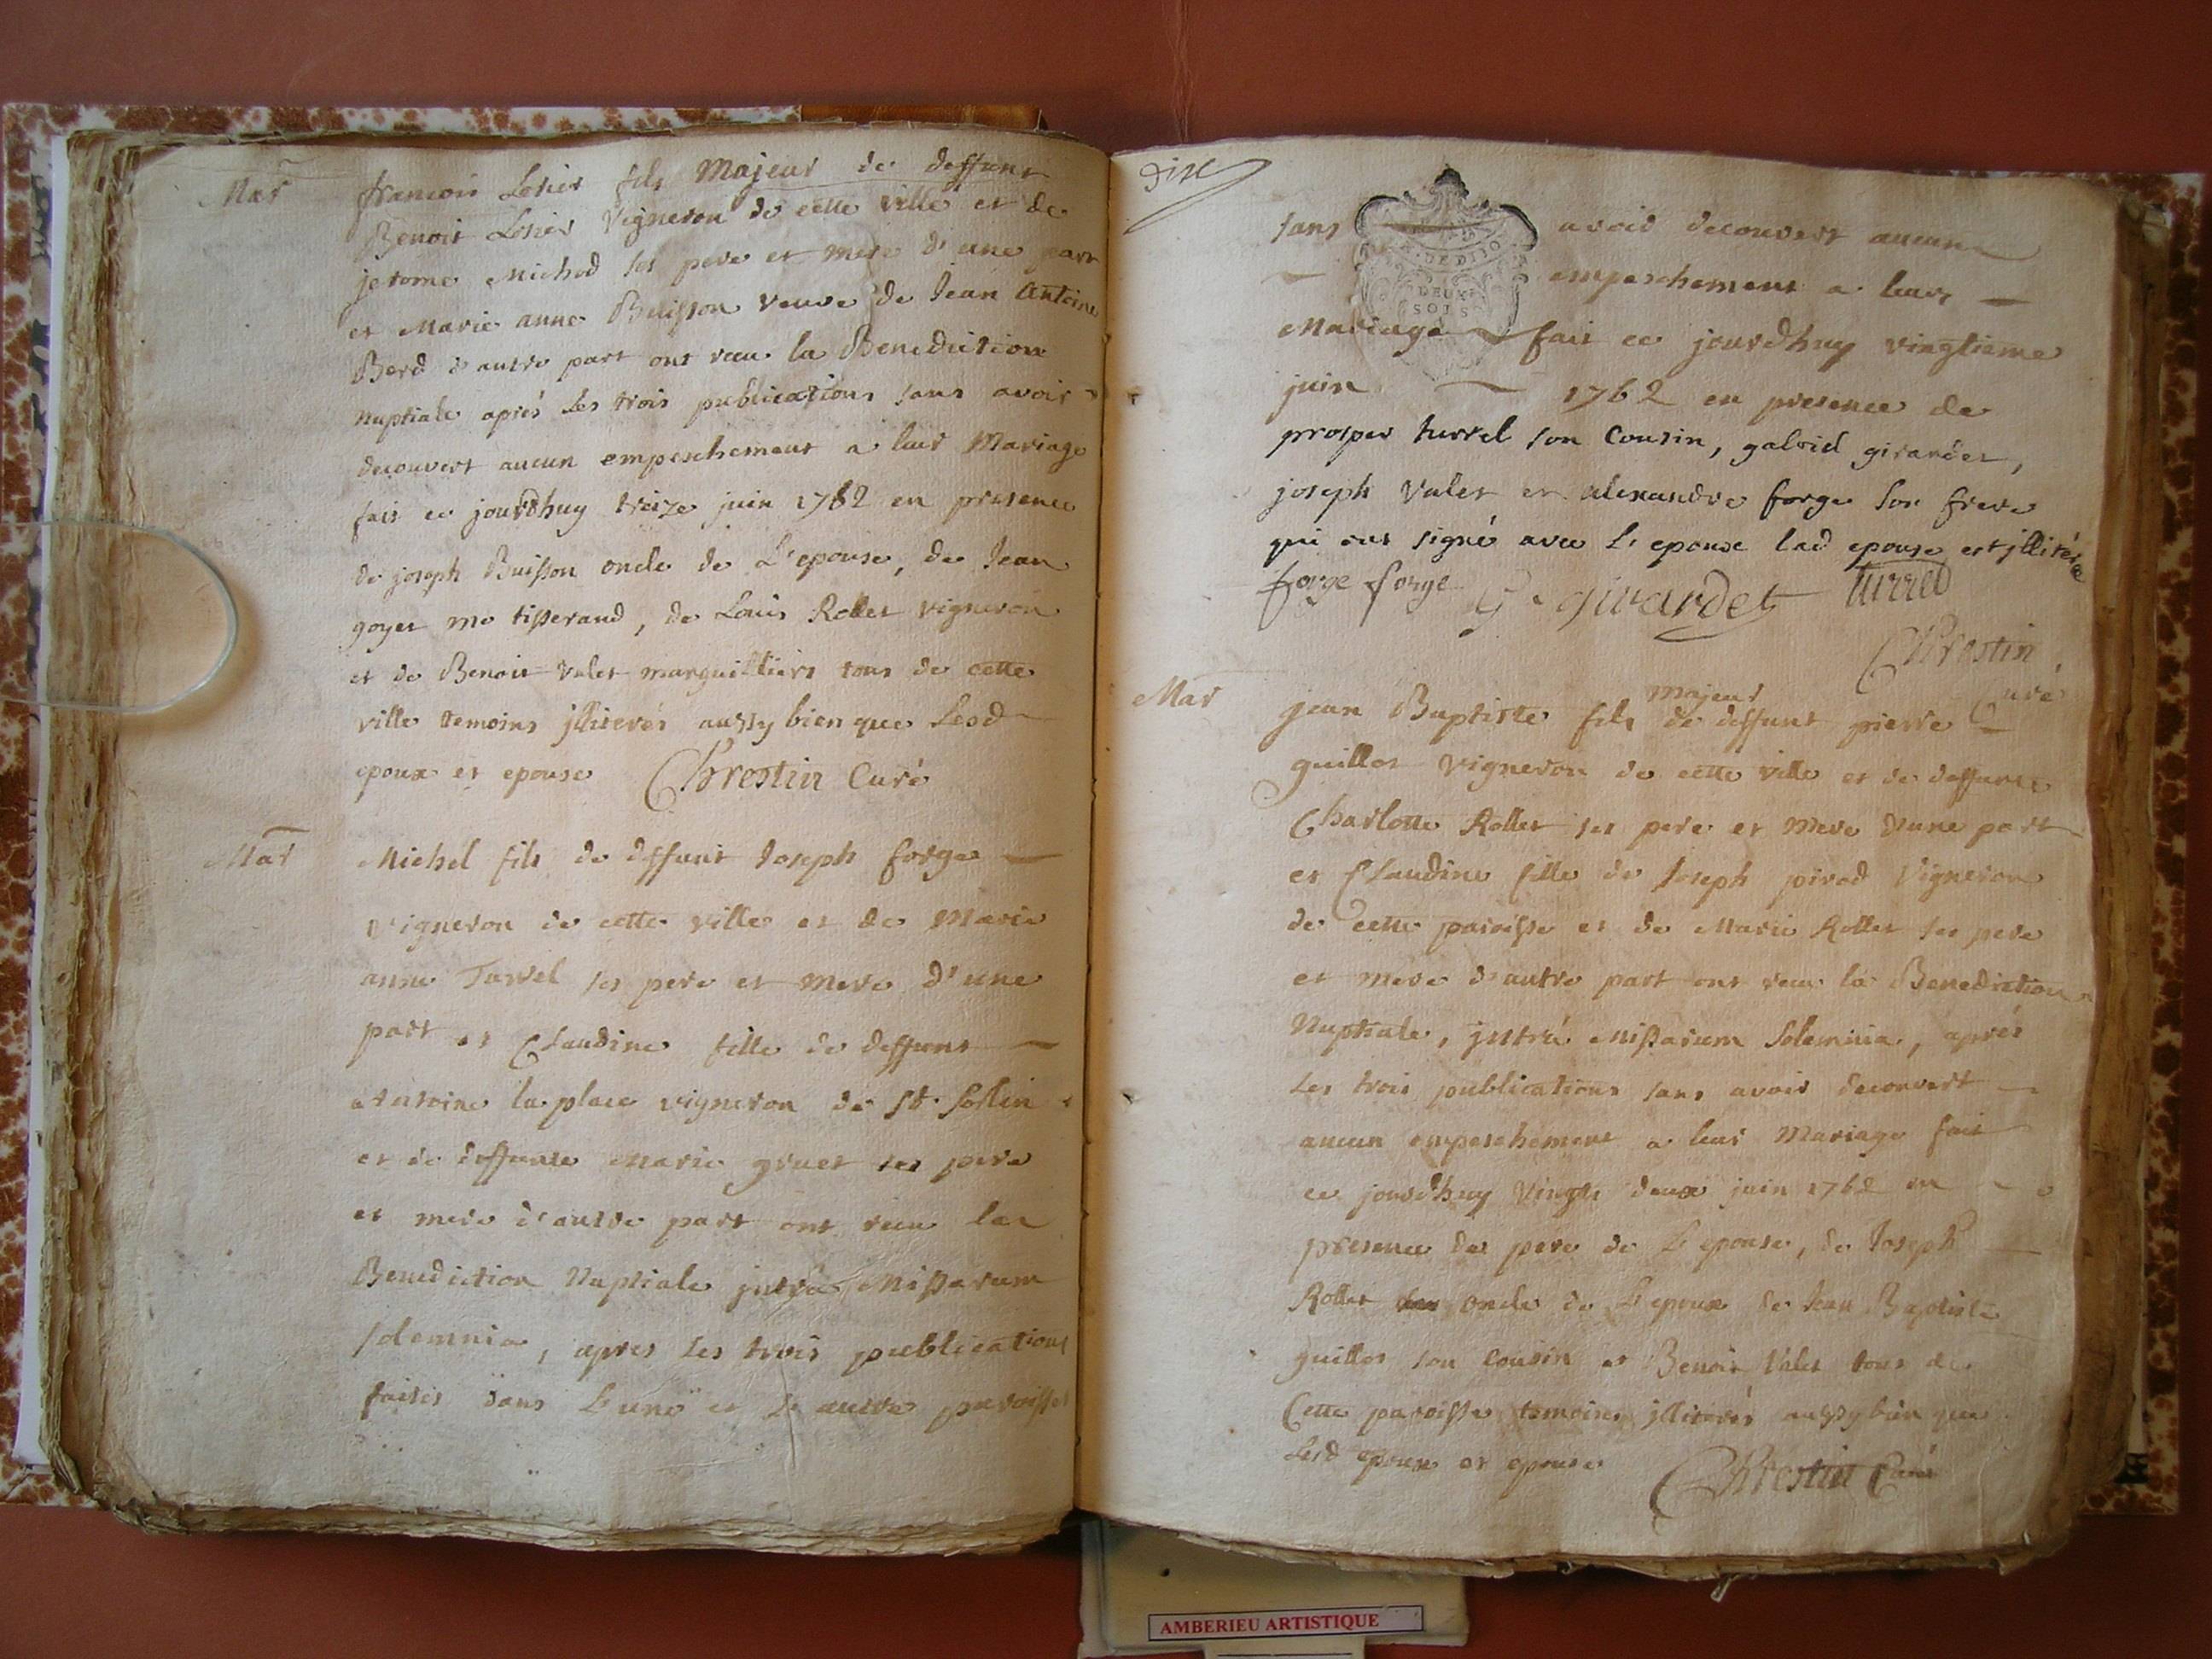 Mar
francois Lesier fils Majeur de deffunt
Benoit Lesier Vigneron de cette ville et de
jerome Michod ses pere et mere d'une part
et Marie anne Buisson veuve de Jean Antoine
Berd d'autre part ont recu la Benediction
nuptiale aprés Les trois publications sans avoir
decouvert aucun empeschement a leur Mariage
fait ce jourdhuy treize juin 1762 en presence
de joseph Buisson oncle de L'epouse, de Jean
goyet me tisserand, de Louis Rollet vigneron
et de Benoit Valet marguilliers tous de cette
ville temoins jlliterés aussy bien que Lesd
epoux et epouse Chrestin Curé
Mar
Michel fils de deffunt Joseph forge
vigneron de cette ville et de Marie
anne Turrel ses pere et mere d'une
part et Claudine fille de deffunt
antoine la place vigneron de St. Sollin
et de deffunte Marie gruet ses pere
et mere d'autre part ont recu la
Benediction Nuptiale jntra Missarum
solemnia, apres Les trois publications
faites dans L'une et L'autre paroisses
sans avoir decouvert aucun
DEUX
SOLS
empeschement a leur
Mariage fait ce jourdhuy vingtieme
juin 1762 en presence de
prosper turrel son Cousin, gabriel girardet,
joseph Valet et alexandre forge son frere
qui ont signé avec L'epoux lad epouse est jlliterée
forge forge G. girardet turrel
Chrestin
Curé
Mar
majeur
jean Baptiste fils de deffunt pierre
guillot vigneron de cette ville et de deffunte
Charlotte Rollet ses pere et mere d'une part
et Claudine fille de Joseph pirod Vigneron
de cette paroisse et de Marie Rollet ses pere
et mere d'autre part ont recu la Benediction
Nuptiale, jntra Missarum Solemnia, aprés
Les trois publications sans avoir decouvert
aucun empeschement a leur Mariage fait
ce jourdhuy Vingt deux juin 1762 en
presence du pere de L'epouse, de Joseph
Rollet oncle de L'epoux de Jean Baptiste
guillot son cousin et Benoit Valet tous de
Cette paroisse temoins jlliterés aussy bien que
Lesd epoux et epouse Chrestin Curé
AMBERIEU ARTISTIQUE